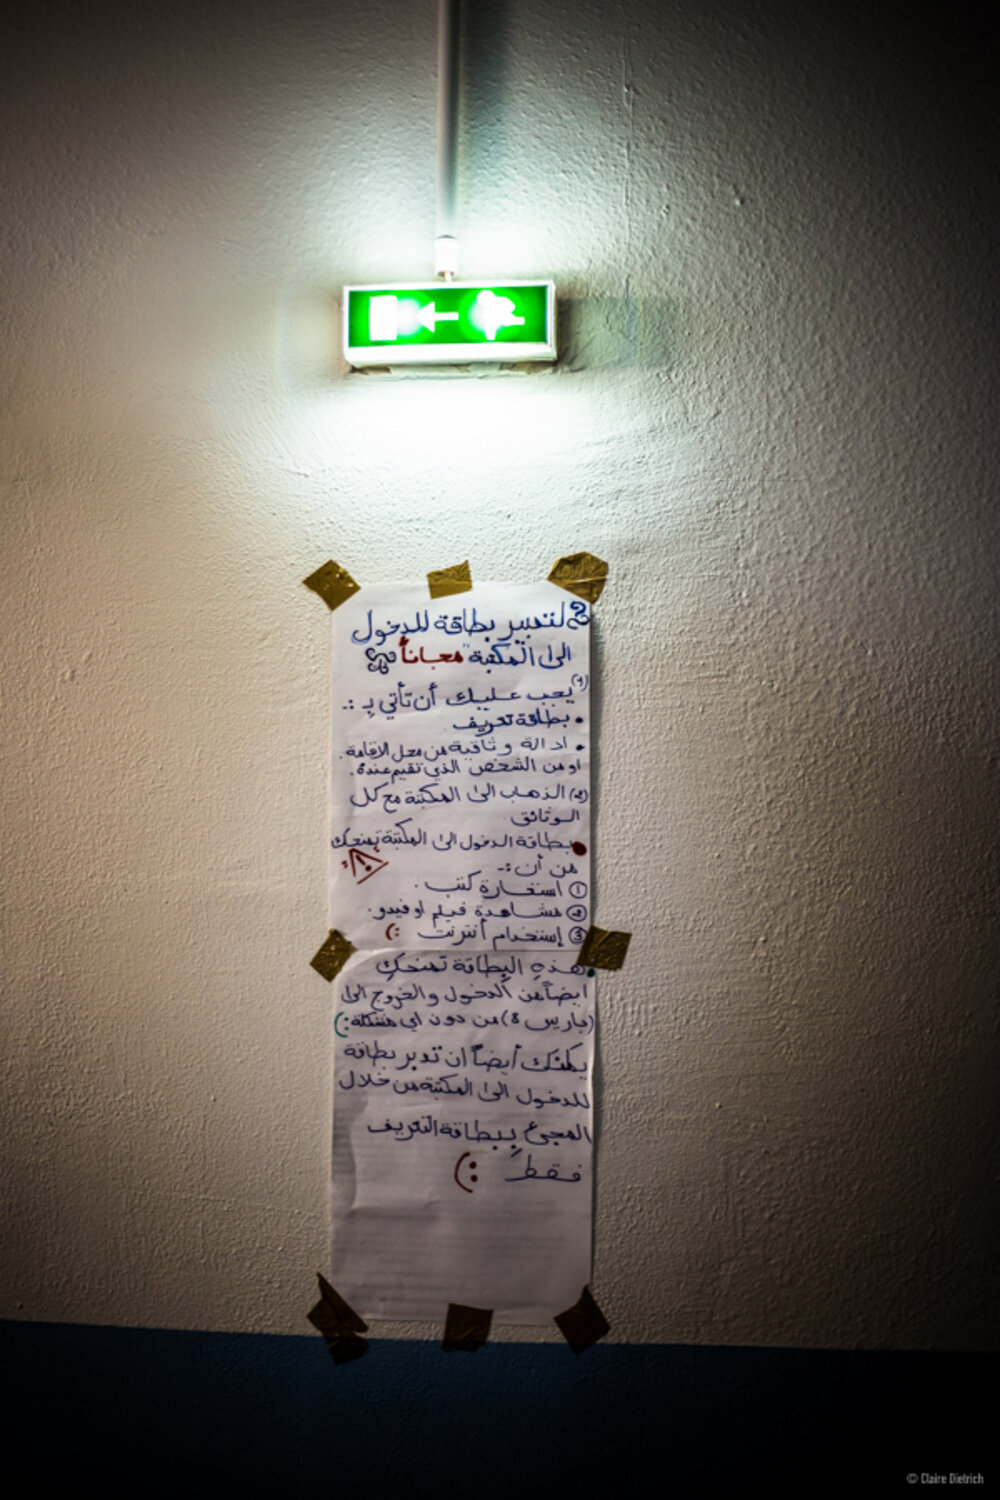 لتدبير بطاقة للدخول
الى المكتبة "مجاناً
(1) يجب عليك أن تأتي بِ :-
• بطاقة تعريف
• ادالة وثاقية من محل الاقامة.
او من الشخص الذي تقيم عندة.
(2) الذهاب الى المكتبة مع كل
الوثائق.
• بطاقة الدخول الى المكتبة تمنحك
من أن :-
① استعارة كتب.
② مشاهدة فيلم او فيديو.
③ إستخدام أنترنت :)
• هذهِ البطاقة تمنحكِ
ايضاً من الدخول والخروج الى
(باريس 8) من دون اي مشكلة :)
يمكنك أيضاً ان تدبر بطاقة
للدخول الى المكتبة من خلال
المجيئ بِبطاقة التعريف
فقط :)
© Claire Dietrich